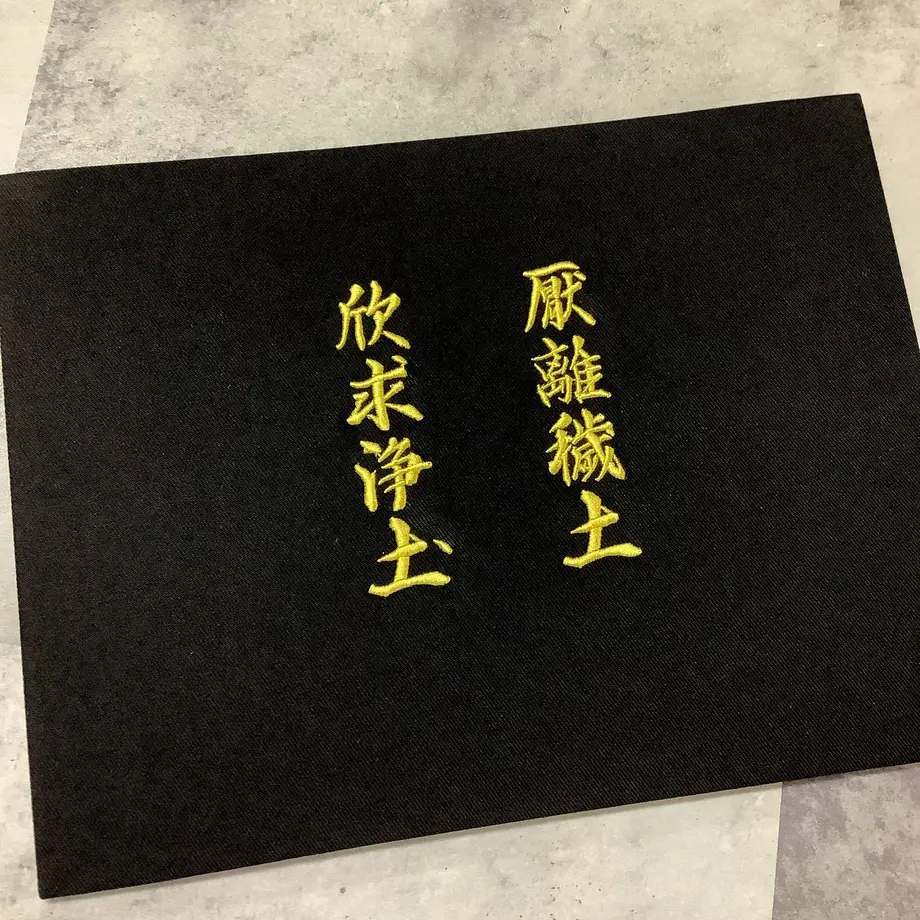 厭離穢土
欣求浄土